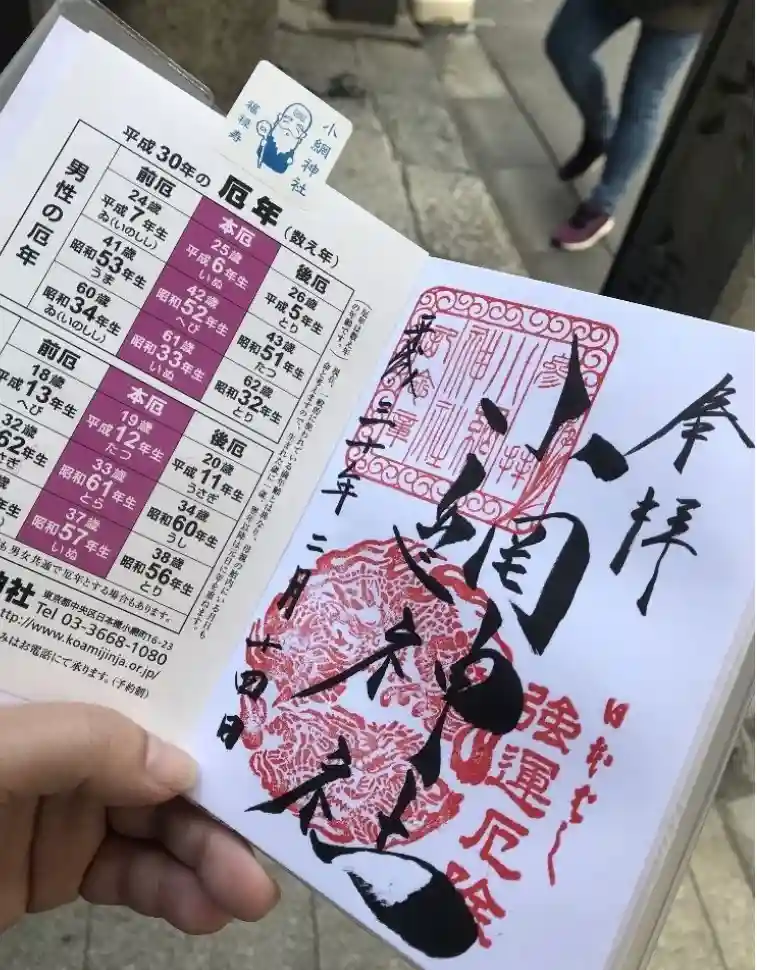 小網神社
福禄寿
平成30年の 厄年 (数え年)
男性の厄年
前厄 本厄 後厄
24歳 25歳 26歳
平成7年生 平成6年生 平成5年生
ゐ(いのしし) いぬ とり
41歳 42歳 43歳
昭和53年生 昭和52年生 昭和51年生
うま へび たつ
60歳 61歳 62歳
昭和34年生 昭和33年生 昭和32年生
ゐ(いのしし) いぬ とり
前厄 本厄 後厄
18歳 19歳 20歳
平成13年生 平成12年生 平成11年生
へび たつ うさぎ
32歳 33歳 34歳
62年生 昭和61年生 昭和60年生
さぎ とら うし
37歳 38歳
年生 昭和57年生 昭和56年生
いぬ とり
も男女共通で厄年とする場合もあります。
神社 東京都中央区日本橋小網町16-23
Tel 03-3668-1080
ttp://www.koamijinja.or.jp/
みはお電話にて承ります。(予約制)
奉拝
日本ばし
強運厄除
小網神社
平成三十年二月十四日